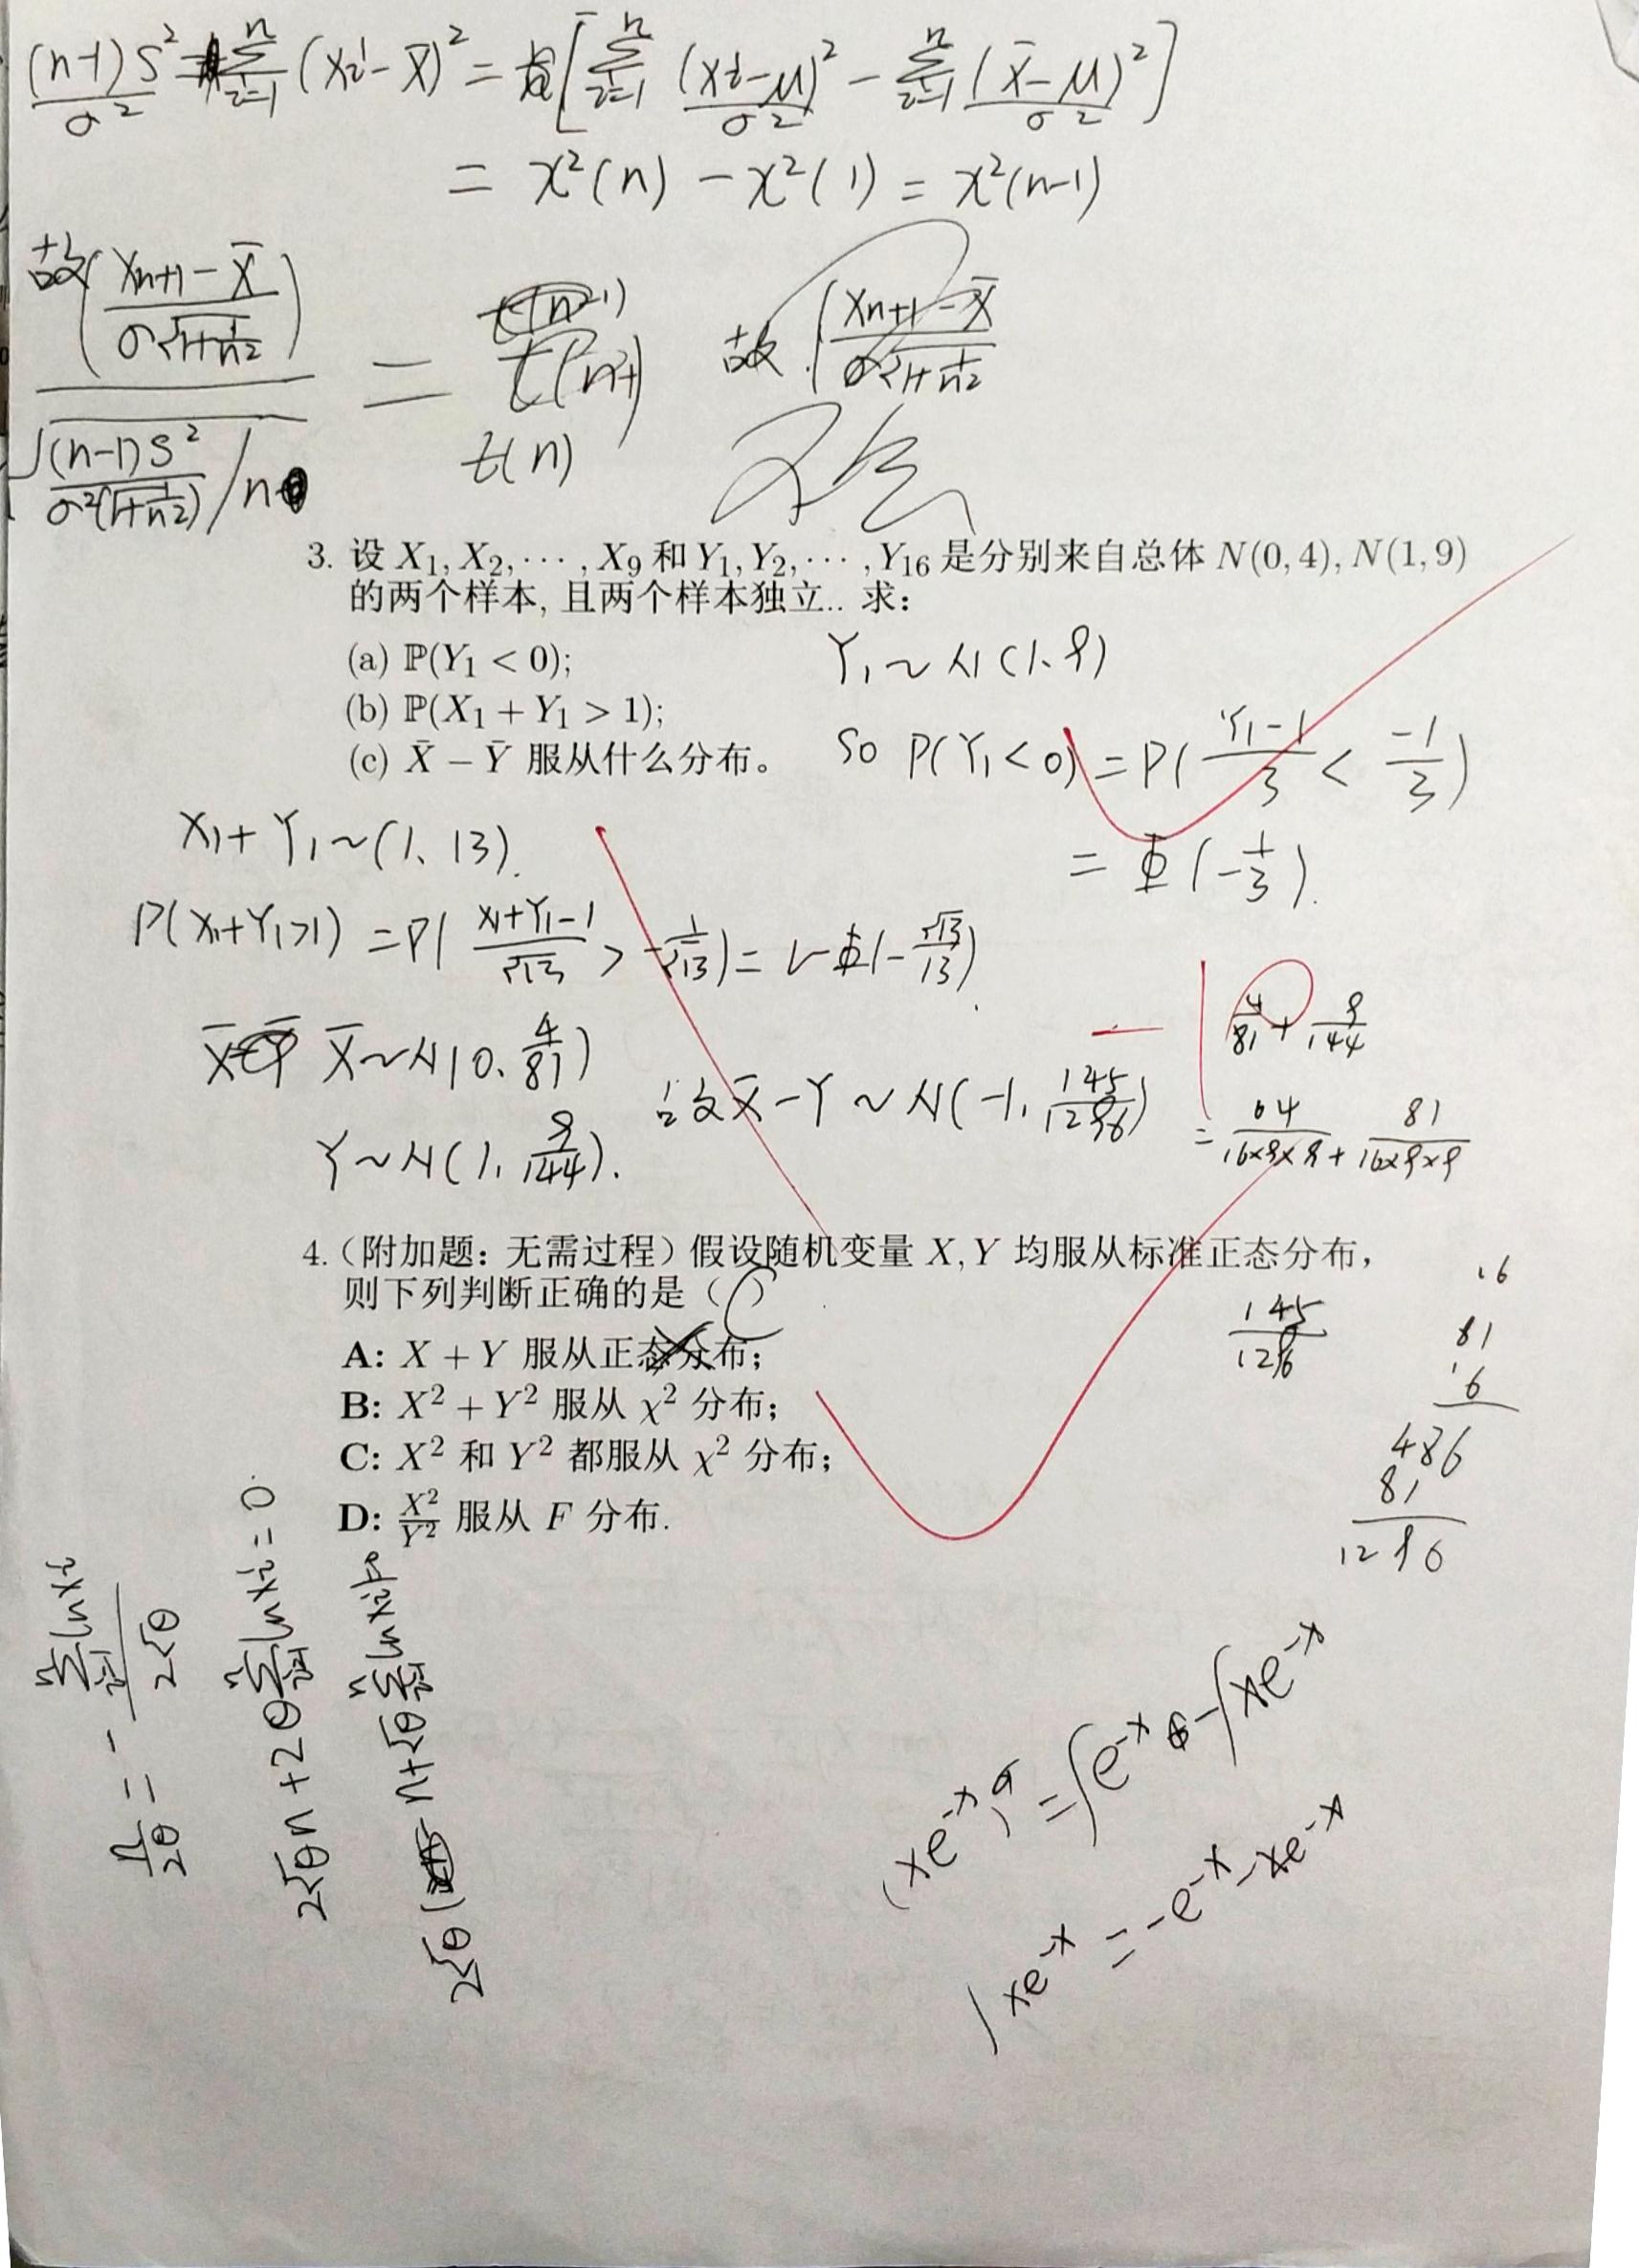 (n-1)S² / σ² = Σ_{i=1}^{n} (Xi - X̄)² = [ Σ_{i=1}^{n} (Xi-μ)²/σ² - Σ_{i=1}^{n} (X̄-μ)²/σ² ]
= χ²(n) - χ²(1) = χ²(n-1)
故 ( (Xn+1 - X̄) / (σ√(1+1/n²)) ) / √( (n-1)S² / (σ²(1+1/n²)) / n ) = t(n)
故 ( (Xn+1 - X̄) / (σ√(1+1/n²))
3. 设 X₁, X₂, ⋯ , X₉ 和 Y₁, Y₂, ⋯ , Y₁₆ 是分别来自总体 N(0, 4), N(1, 9)
的两个样本, 且两个样本独立.. 求:
(a) ℙ(Y₁ < 0);
(b) ℙ(X₁ + Y₁ > 1);
(c) X̄ − Ȳ 服从什么分布。
Y₁ ~ N(1、9)
So P(Y₁ < 0) = P( (Y₁-1)/3 < -1/3 )
= Φ(-1/3).
X₁+Y₁ ~ (1、13).
P(X₁+Y₁>1) = P( (X₁+Y₁-1)/√13 > -1/√13 ) = 1-Φ(-√13/13).
X̄ ~ N(0、4/81)
Y ~ N(1, 9/144).
故 X̄ - Y ~ N(-1, 145/1296)
4/81 + 9/144
= 64/(16×9×9) + 81/(16×9×9)
4.（附加题: 无需过程）假设随机变量 X, Y 均服从标准正态分布,
则下列判断正确的是（C）
A: X + Y 服从正态分布;
B: X² + Y² 服从 χ² 分布;
C: X² 和 Y² 都服从 χ² 分布;
D: X²/Y² 服从 F 分布.
145/1296
16
81
16
486
81
1296
n/2θ = - Σ_{i=1}^{n} ln xi / 2√θ
2√θ n + 2θ Σ_{i=1}^{n} ln xi = 0
n + √θ Σ_{i=1}^{n} ln xi
∫xe^{-x} = -e^{-x} - xe^{-x}